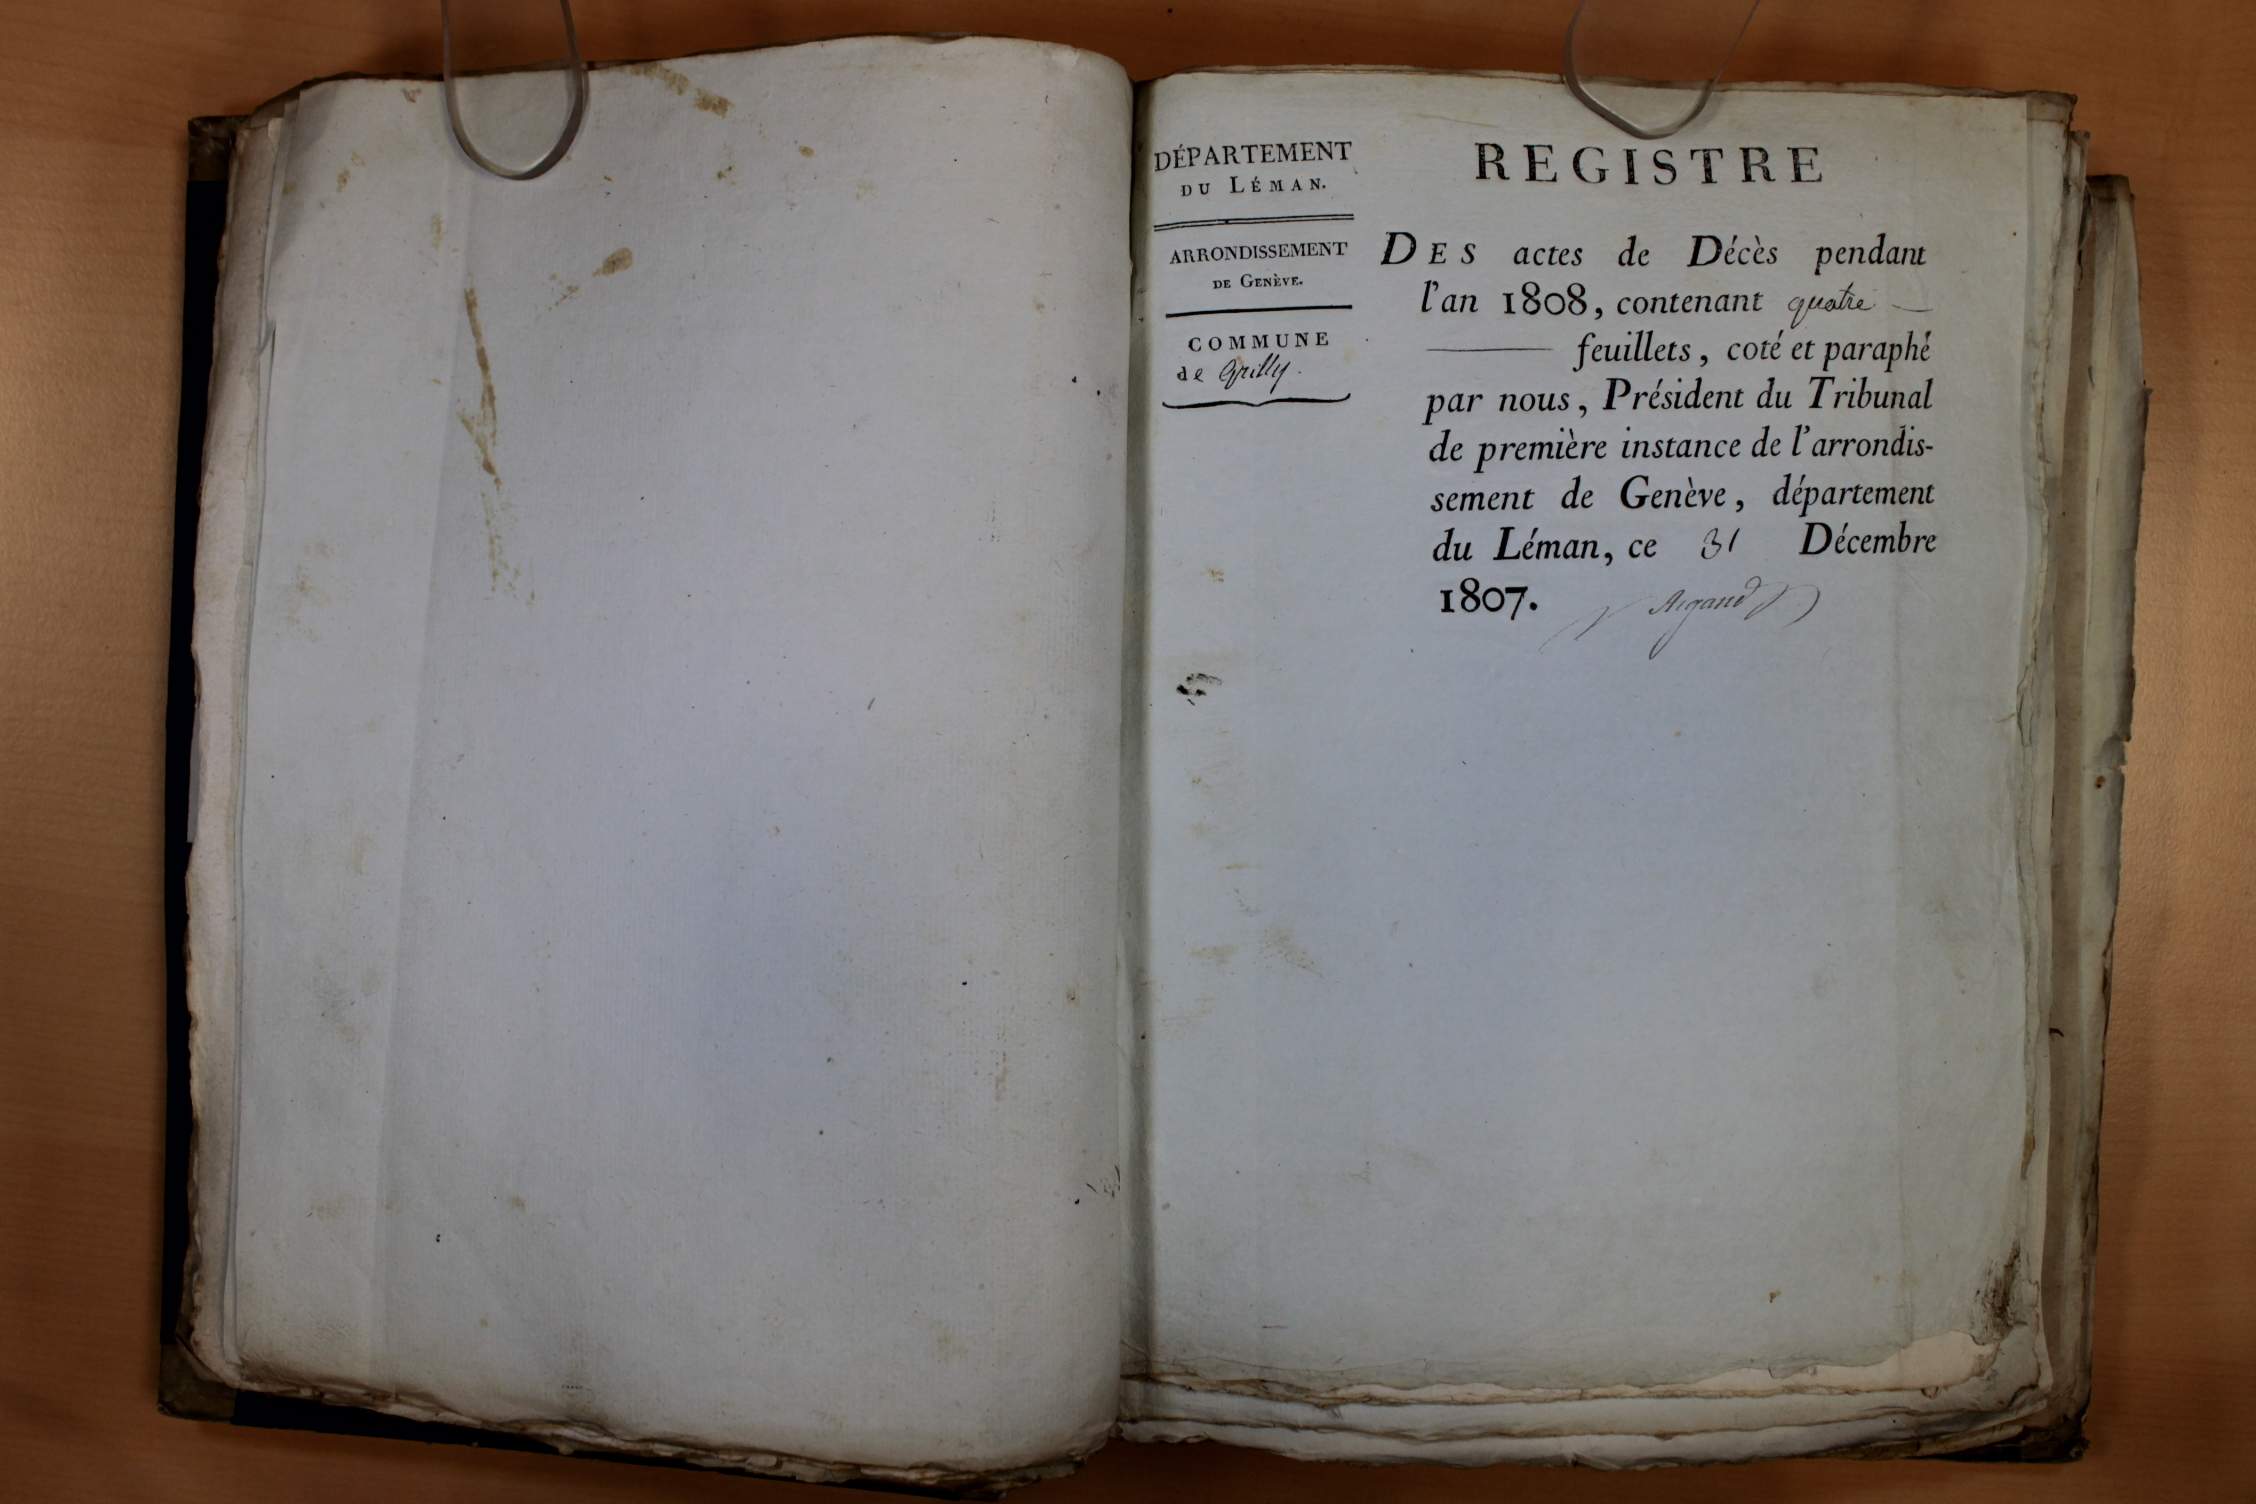 DÉPARTEMENT
DU LÉMAN.
ARRONDISSEMENT
DE GENÈVE.
COMMUNE
de Grilly.
REGISTRE
DES actes de Décès pendant
l'an 1808, contenant quatre
feuillets, coté et paraphé
par nous, Président du Tribunal
de première instance de l'arrondis-
sement de Genève, département
du Léman, ce 31 Décembre
1807.
Argand